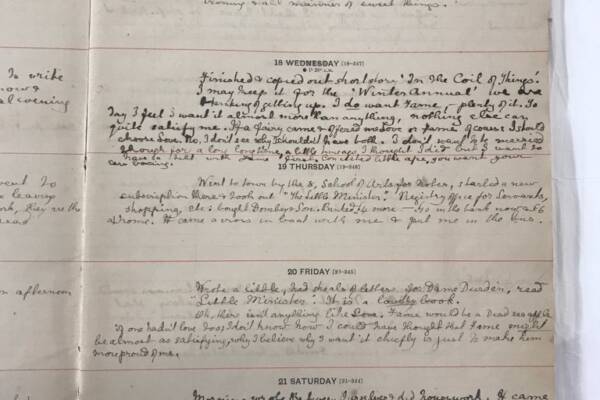 18 WEDNESDAY [18-347]
Finished & copied out short story 'In The Coil of Things'.
I may keep it for the 'Winter Annual' we are
thinking of getting up. I do want Fame – plenty of it. To
day I feel I want it almost more than anything, nothing else can
quite satisfy me. If a fairy came & offered me love or fame of course I should
choose Love. No, I don't see why I shouldn't have both. I don't want to be married
though for a long long time, a little while ago I thought I did but I want to
have to with Fame first. Conceited little ape, you want your
ears boxing.
19 THURSDAY [19-346]
Went to town by the 8, School of Arts for Rober, started a new
subscription there & took out "The Little Minister". Registry Office for Servants,
shopping, etc: bought Dombey & Son. Banked £4 more – in the bank now £66
at home. H came across in boat with me & put me in the bus.
20 FRIDAY [20-345]
Wrote a little, had heaps of letters for Dame Durden, read
"Little Minister". It is a lovely book.
Oh, there isn't anything like Love. Fame would be a Dead sea apple
if one hadn't love too. I don't know how I could have thought that Fame might
be almost as satisfying, why I believe why I want it chiefly is just to make them
more proud of me.
21 SATURDAY [21-344]
H came
to write
now &
evening
leaving
work, they are the
afternoon